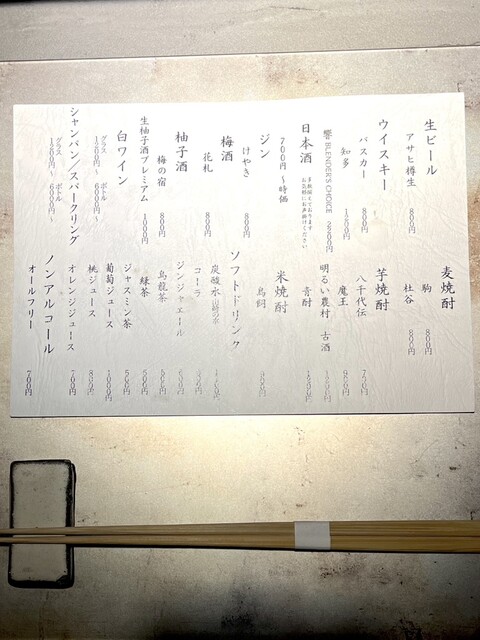 生ビール
アサヒ樽生 800円
ウイスキー
バスカー 800円
知多 1200円
響 BLENDER'S CHOICE
日本酒
多数揃えております
お気軽にお声掛けください
700円～時価
ジン
けやき 800円
梅酒
花札 800円
柚子酒
梅の宿 800円
生柚子酒プレミアム 1000円
白ワイン
グラス ボトル
1200円～ 6000円～
シャンパン/スパークリング
グラス ボトル
1200円～ 6000円～
麦焼酎
駒 800円
杜谷 800円
芋焼酎
八千代伝
魔王
明るい農村 古酒
青酎
米焼酎
鳥飼
ソフトドリンク
炭酸水
コーラ
ジンジャエール
烏龍茶 500円
緑茶 500円
ジャスミン茶 500円
葡萄ジュース 1000円
桃ジュース 800円
オレンジジュース 700円
ノンアルコール
オールフリー 700円